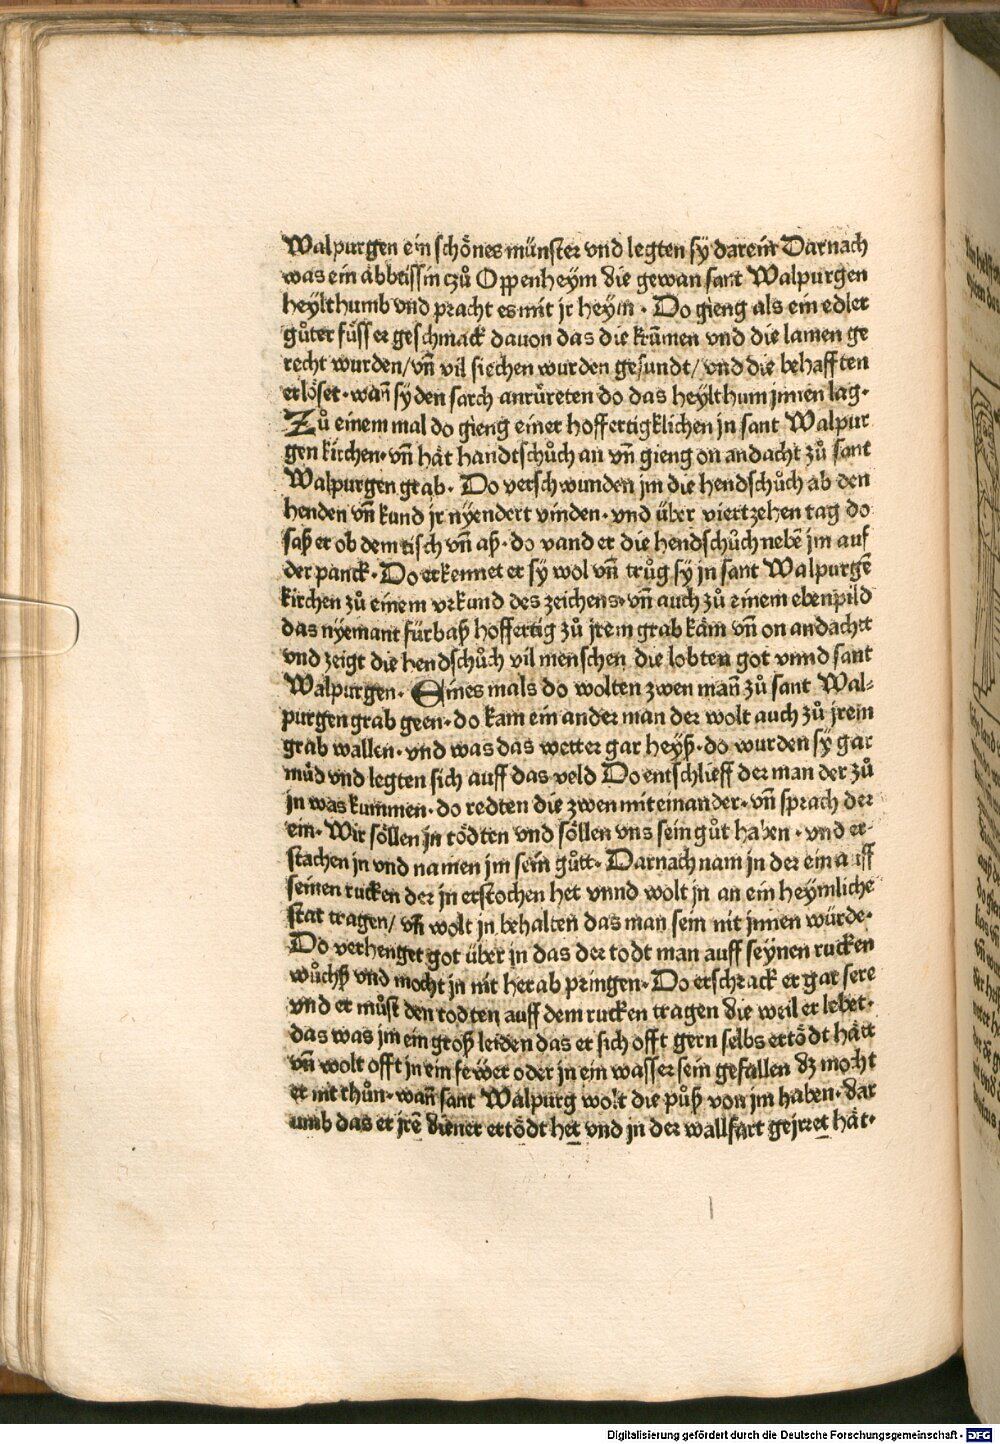 Walpurgen ein schönes münster vnd legten sy darein Darnach
was ein äbbtissin czů Oppenheym die gewan sant Walpurgen
heylthumb vnd pracht es mit jr heym · Do gieng als ein edler
gůter füsser geschmack dauon das die krūmen vnd die lamen ge
recht wurden/ vn̄ vil siechen wurden gesundt/ vnd die behafften
erlöset · wan̄ sy den sarch anrüreten do das heylthum jnnen lag ·
Zů einem mal do gieng einer hoffertigklichen in sant Walpur
gen kirchen · vn̄ hät handtschůch an vn̄ gieng on andacht zů sant
Walpurgen grab · Do verschwunden jm die hendschůch ab den
henden vn̄ kund jr nyendert vinden · vnd über viertzehen tag do
saß er ob dem tisch vn̄ aß · do vand er die hendschůch nebē jm auf
der panck · Do erkennet er sy wol vn̄ trůg sy jn sant Walpurgē
kirchen zů einem vrkund des zeichens · vn̄ auch zů einem ebenpild
das nyemant fürbaß hoffertig zů jrem grab käm vn̄ on andacht
vnd zeigt die hendschůch vil menschen die lobten got vnnd sant
Walpurgen · Eines mals do wolten zwen man̄ zů sant Wal⸗
purgen grab geen · do kam ein ander man der wolt auch zů jrem
grab wallen · vnd was das wetter gar heyß · do wurden sy gar
müd vnd legten sich auff das veld Do entschlieff der man der zů
jn was kummen · do redten die zwen miteinander · vn̄ sprach der
ein · Wir söllen jn tödten vnd söllen vns sein gůt haben · vnd er⸗
stachen jn vnd namen jm sein gůtt · Darnach nam in der ein auff
seinen rucken der jn erstochen het vnnd wolt jn an ein heymliche
stat tragen/ vn̄ wolt jn behalten das man sein nit jnnen würde ·
Do verhenget got über in das der todt man auff seynen rucken
wůchß vnd mocht jn nit herab pringen · Do erschrack er gar sere
vnd er můst den todten auff dem rucken tragen die weil er lebet ·
das was jm ein groß leiden das er sich offt gern selbs ertödt hätt
vn̄ wolt offt jn ein fewer oder jn ein wasser sein gefallen dz mocht
er nit thůn · wan̄ sant Walpurg wolt die půß von jm haben · dar
umb das er jrē diener ertödt het vnd in der wallfart gejrret hät ·
Digitalisierung gefördert durch die Deutsche Forschungsgemeinschaft · DFG